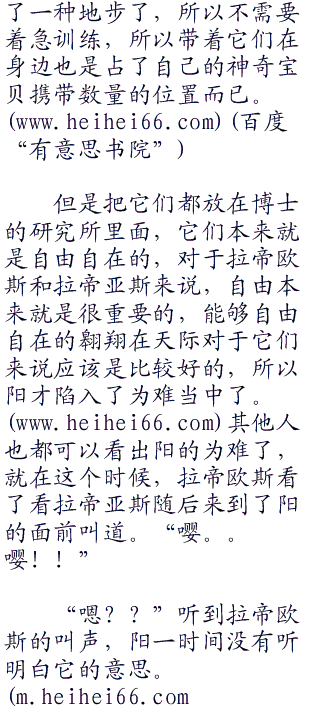 了一种地步了，所以不需要
着急训练，所以带着它们在
身边也是占了自己的神奇宝
贝携带数量的位置而已。
(www.heihei66.com)(百度
“有意思书院”)
但是把它们都放在博士
的研究所里面，它们本来就
是自由自在的，对于拉帝欧
斯和拉帝亚斯来说，自由本
来就是很重要的，能够自由
自在的翱翔在天际对于它们
来说应该是比较好的，所以
阳才陷入了为难当中了。
(www.heihei66.com)其他人
也都可以看出阳的为难了，
就在这个时候，拉帝欧斯看
了看拉帝亚斯随后来到了阳
的面前叫道。“嘤。。
嘤！！”
“嗯？？”听到拉帝欧
斯的叫声，阳一时间没有听
明白它的意思。
(m.heihei66.com